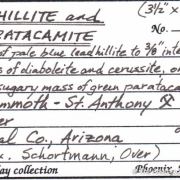 HILLITE and (3½" x
ATACAMITE No.
of pale blue leadhillite to ⅜" inte
s of diaboleite and cerussite, on
sugary mass of green paratacam
mmoth - St. Anthony
er
al Co., Arizona
x. Schortmann, Over)
ay collection Phoenix,